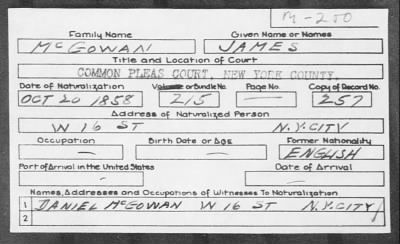 M-200
Family Name Given Name or Names
McGOWAN JAMES
Title and Location of Court
COMMON PLEAS COURT, NEW YORK COUNTY.
Date of Naturalization Volume or Bundle No. Page No. Copy of Record No.
OCT 20 1858 215 — 257
Address of Naturalized Person
W 16 ST N.Y. CITY
Occupation Birth Date or Age Former Nationality
— — ENGLISH
Port of Arrival in the United States Date of Arrival
— —
Names, Addresses and Occupations of Witnesses To Naturalization
1 DANIEL McGOWAN W 16 ST N.Y. CITY
2